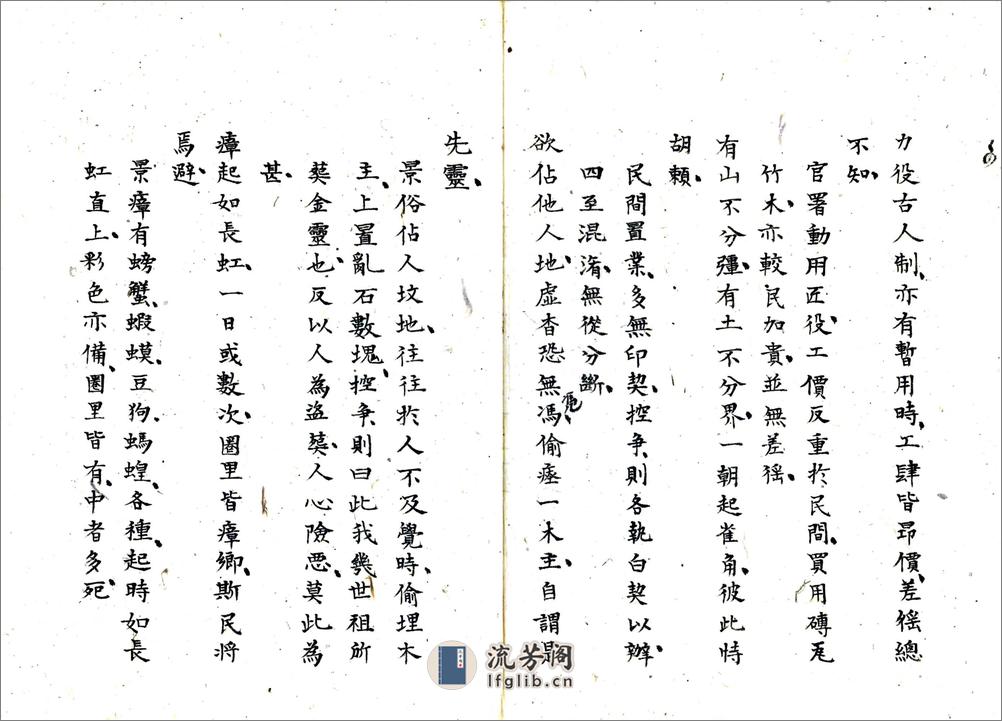 力役古人制、亦有暫用時、工肆皆昂價、差徭總
不知、
官署動用匠役、工價反重於民間、買用磚瓦
竹木、亦較民加貴、並無差徭、
有山不分彊、有土不分界、一朝起雀角、彼此恃
胡賴、
民間置業、多無印契、控爭則各執白契以辦、
四至混淆、無從分斷、
欲佔他人地、虛杳恐無馮、偷瘞一木主、自謂是
先靈、
景俗佔人坟地、往往於人不及覺時、偷埋木
主、上置亂石數塊、控爭則曰此我幾世祖所
葬金靈也、反以人為盜葬、人心險惡、莫此為
甚、
瘴起如長虹、一日或數次、圈里皆瘴鄉、斯民將
焉避、
景瘴有螃蟹、蝦蟆、豆狗、螞蝗、各種、起時如長
虹直上、彩色亦備、圈里皆有、中者多死、
流芳阁
lfglib.cn